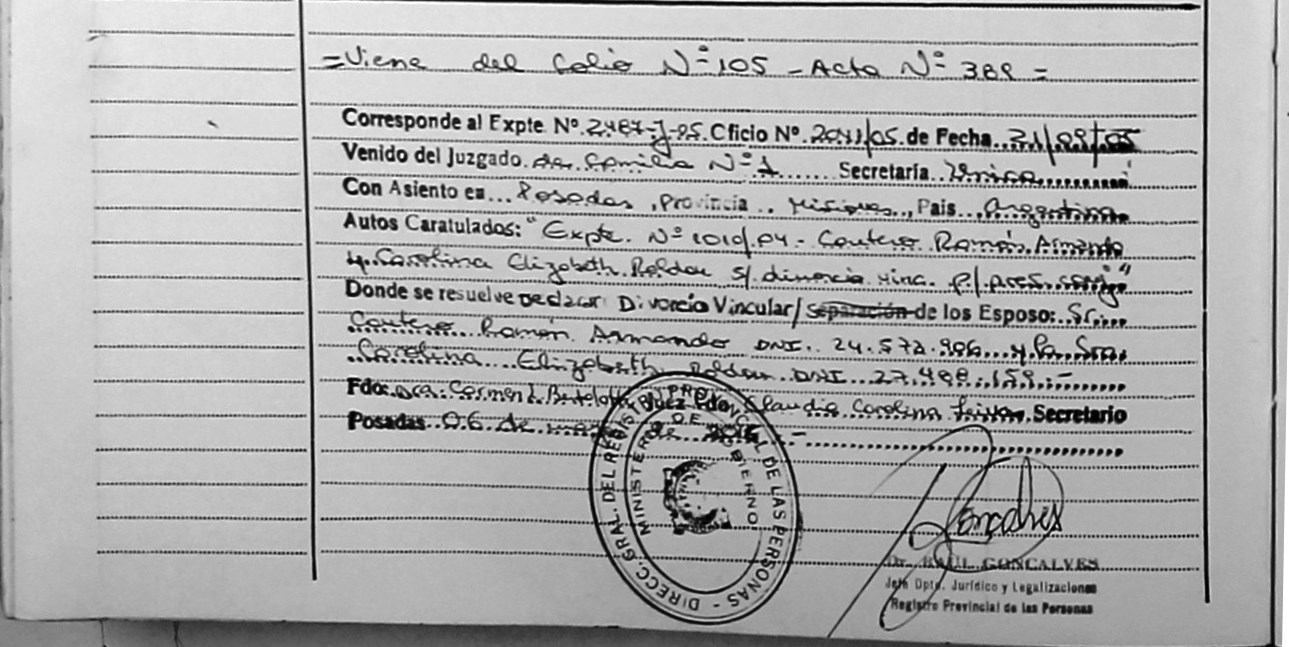 =Viene del Folio Nº 105 - Acta Nº 389 =
Corresponde al Expte Nº. 2487-J-05. Oficio Nº. 2041/05. de Fecha
Venido del Juzgado. de Familia Nº 1 Secretaría Única
Con Asiento en... Posadas, Provincia.. Misiones, País Argentina
Autos Caratulados: "Expte. Nº 1010/04 - Ramón Armando
y Carolina Elizabeth Roldan s/ divorcio vinc. p/pres. conj"
Donde se resuelve Declarar: Divorcio Vincular/ Separación de los Esposo: Sr.
Ramón Armando DNI. 24.572.986 y la Sra.
Carolina Elizabeth Roldan DNI 27.488.159.-
Fdo: Dra. Carmen Juez Fdo Claudia Carolina Secretario
Posadas 06 de
DIRECC. GRAL. DEL REGISTRO PROVINCIAL DE LAS PERSONAS -
MINISTERIO DE GOBIERNO
Goncalves
Dr. RAUL GONCALVES
Jefe Dpto. Jurídico y Legalizaciones
Registro Provincial de las Personas